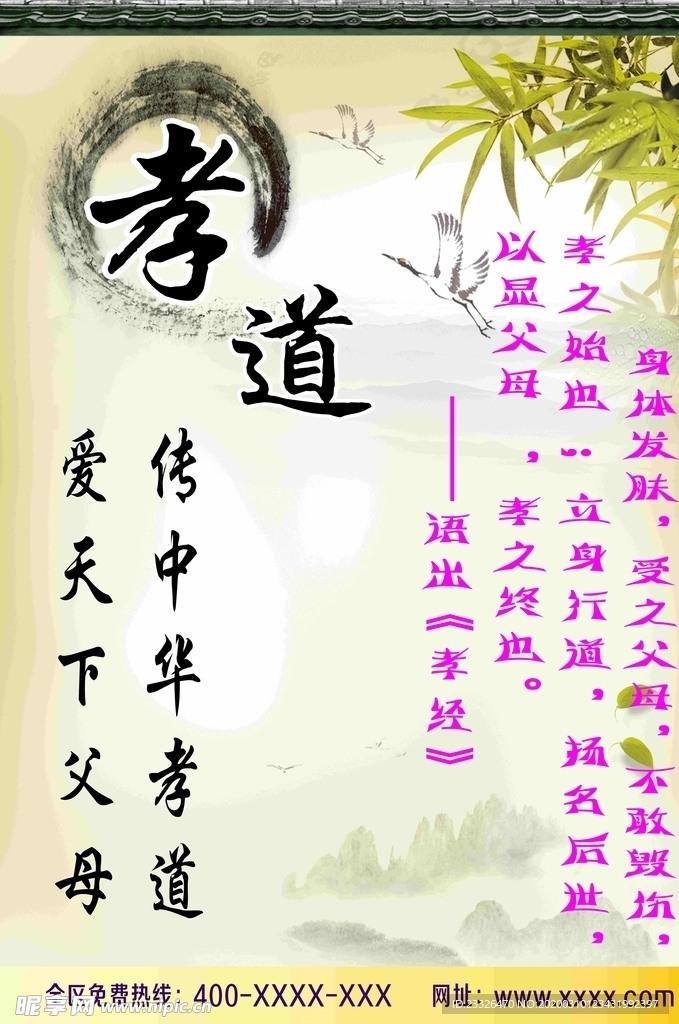 孝
道
身体发肤，受之父母，不敢毁伤，
孝之始也：立身行道，扬名后世，
以显父母，孝之终也。
——语出《孝经》
传中华孝道
爱天下父母
全区免费热线：400-XXXX-XXX 网址：www.xxxx.com
昵享网 www.nipic.cn
ID:23326470 NO:20200310123431992397